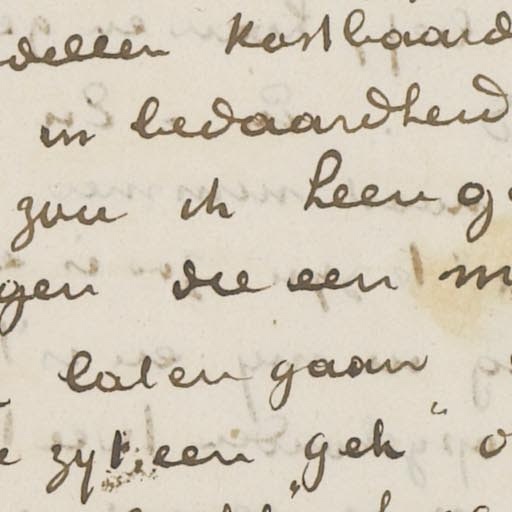 deelen kostbaard
in bedaardheid
zou ik heen g
gen die een m
laten gaan
e zyt een "gek" o